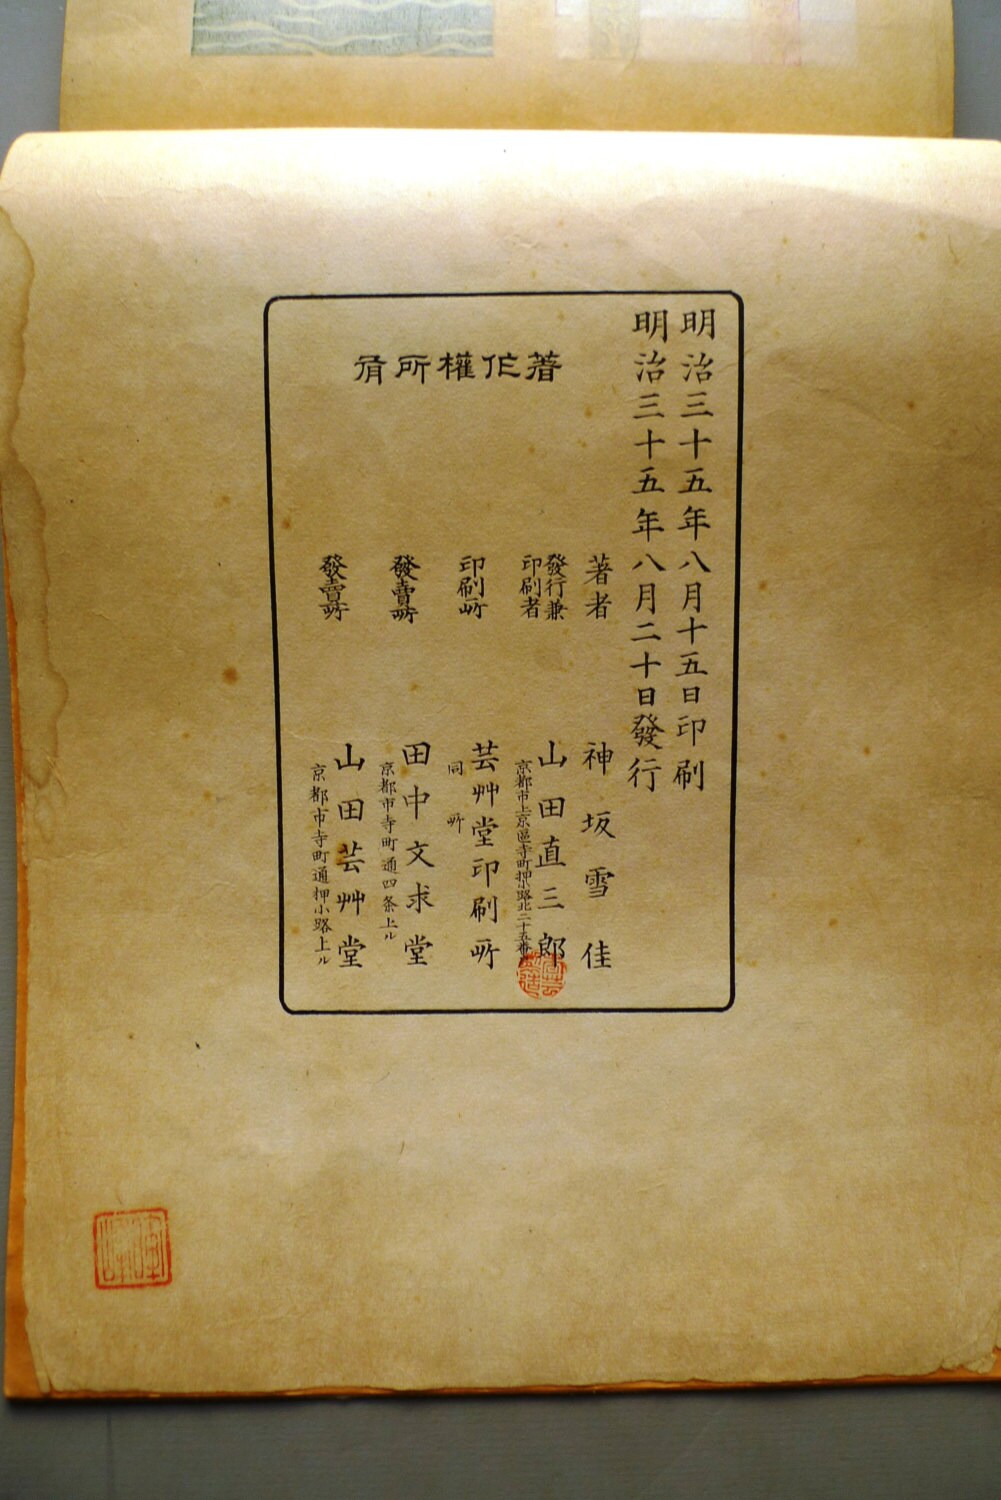 明治三十五年八月十五日印刷
明治三十五年八月二十日發行
著作權所有
著者 神坂雪佳
發行兼印刷者 山田直三郎
京都市上京區寺町押小路北二十五番
印刷所 芸艸堂印刷所
同所
發賣所 田中文求堂
京都市寺町通四条上ル
發賣所 山田芸艸堂
京都市寺町通押小路上ル